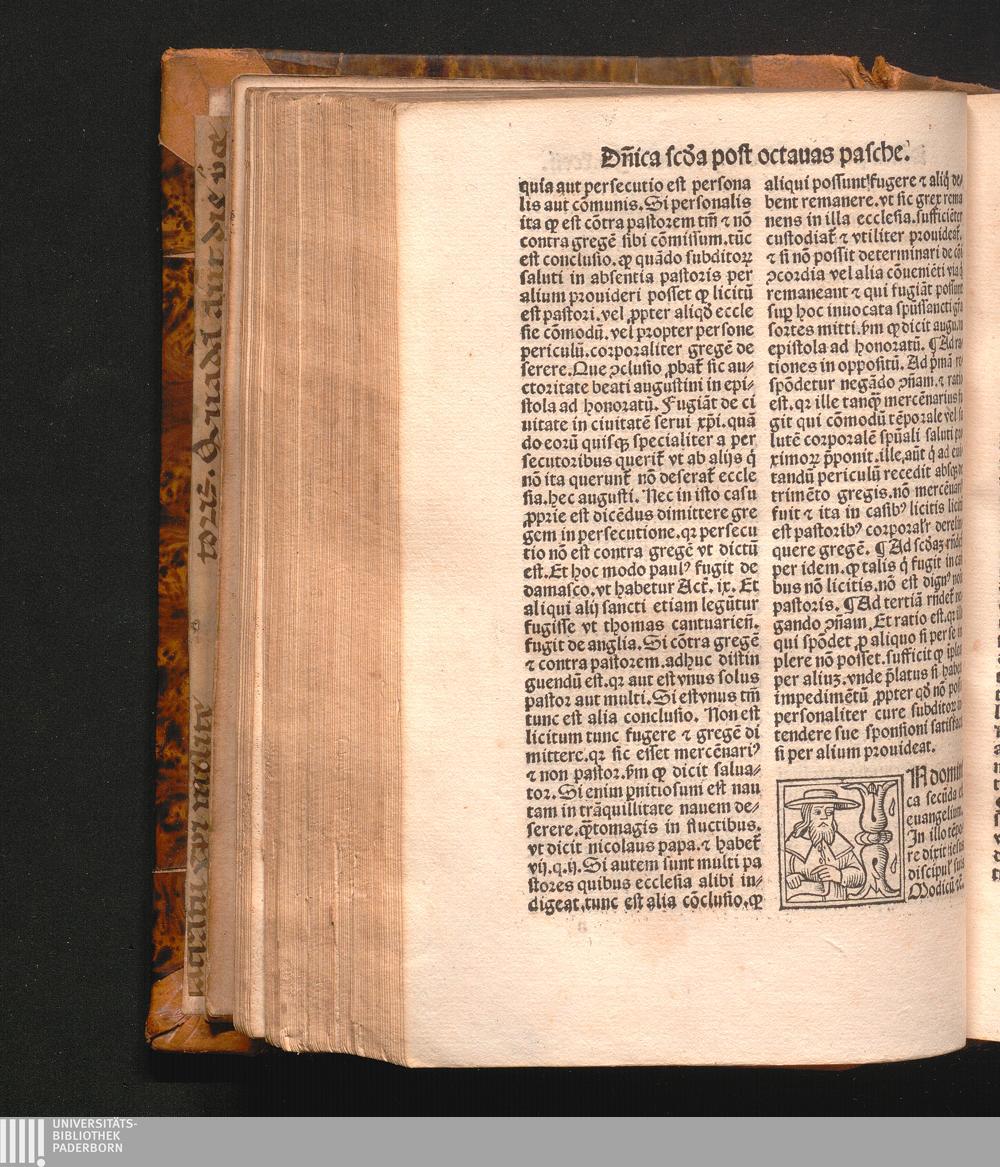 Dñica scďa post octauas pasche.
quia aut persecutio est persona
lis aut cōmunis. Si personalis
ita ꝙ est cōtra pastorem tm̄ ⁊ nō
contra gregē sibi cōmissum. tūc
est conclusio. ꝙ quādo subditoꝝ
saluti in absentia pastoris per
alium prouideri posset ꝙ licitū
est pastori. vel ꝓpter aliqď eccle
sie cōmodū. vel propter persone
periculū. corporaliter gregē de
serere. Que ↄclusio ꝓbat᷑ sic au⸗
ctoritate beati augustini in epi⸗
stola ad honoratū. Fugiāt de ci
uitate in ciuitatē serui xp̄i. quā
do eorū quisqꝫ specialiter a per
secutoribus querit᷑ vt ab alijs q̇
nō ita querunt᷑ nō deserat᷑ eccle
sia. hec augusti. Nec in isto casu
ꝓprie est dicēdus dimittere gre
gem in persecutione. qꝛ persecu
tio nō est contra gregē vt dictū
est. Et hoc modo paulꝰ fugit de
damasco. vt habetur Act᷑. ix. Et
aliqui alij sancti etiam legūtur
fugisse vt thomas cantuarien̄.
fugit de anglia. Si cōtra gregē
⁊ contra pastorem. adhuc distin
guendū est. qꝛ aut est vnus solus
pastor aut multi. Si est vnus tm̄
tunc est alia conclusio. Non est
licitum tunc fugere ⁊ gregē di
mittere. qꝛ sic esset mercēnariꝰ
⁊ non pastor. ẜm ꝙ dicit salua⸗
tor. Si enim ꝑnitiosum est nau
tam in trāquillitate nauem de⸗
serere. q̄tomagis in fluctibus.
vt dicit nicolaus papa. ⁊ habet᷑
vij. q. ij. Si autem sunt multi pa
stores quibus ecclesia alibi in⸗
digeat. tunc est alia cōclusio. ꝙ
aliqui possunt fugere ⁊ aliq̇ de⸗
bent remanere. vt sic grex rema
nens in illa ecclesia. sufficiēter
custodiat᷑ ⁊ vtiliter prouideat᷑.
⁊ si nō possit determinari de
ↄcordia vel alia cōueniēti via
remaneant ⁊ qui fugiāt possunt
suꝑ hoc inuocata spūssancti
sortes mitti. ẜm ꝙ dicit augu.
epistola ad honoratū. ¶ Ad ra
tiones in oppositū. Ad pͥmā
spōdetur negādo ↄñam. ⁊ ratio
est. qꝛ ille tanꝙ mercēnarius
git qui cōmodū tēporale vel
lutē corporalē spūali saluti
ximoꝝ p̄ponit. ille aūt q̇ ad
tandū periculū recedit absqꝫ
trimēto gregis. nō mercēnari
fuit ⁊ ita in casibꝰ licitis
est pastoribꝰ corporal'r
quere gregē. ¶ Ad scďaꝫ
per idem. ꝙ talis q̇ fugit in
bus nō licitis. nō est dignꝰ
pastoris. ¶ Ad tertiā rn̄det᷑
gando ↄñam. Et ratio est. qꝛ
qui spōdet ꝓ aliquo si per se
plere nō posset. sufficit ꝙ
per aliuꝫ. vnde p̄latus si
impedimētū ꝓpter qď nō
personaliter cure subditoꝝ
tendere sue sponsioni
si per alium prouideat.
IN
ca secūda
euangelium.
In illo
re dixit iesus
discipul' suis
Modicū
UNIVERSITÄTS-
BIBLIOTHEK
PADERBORN